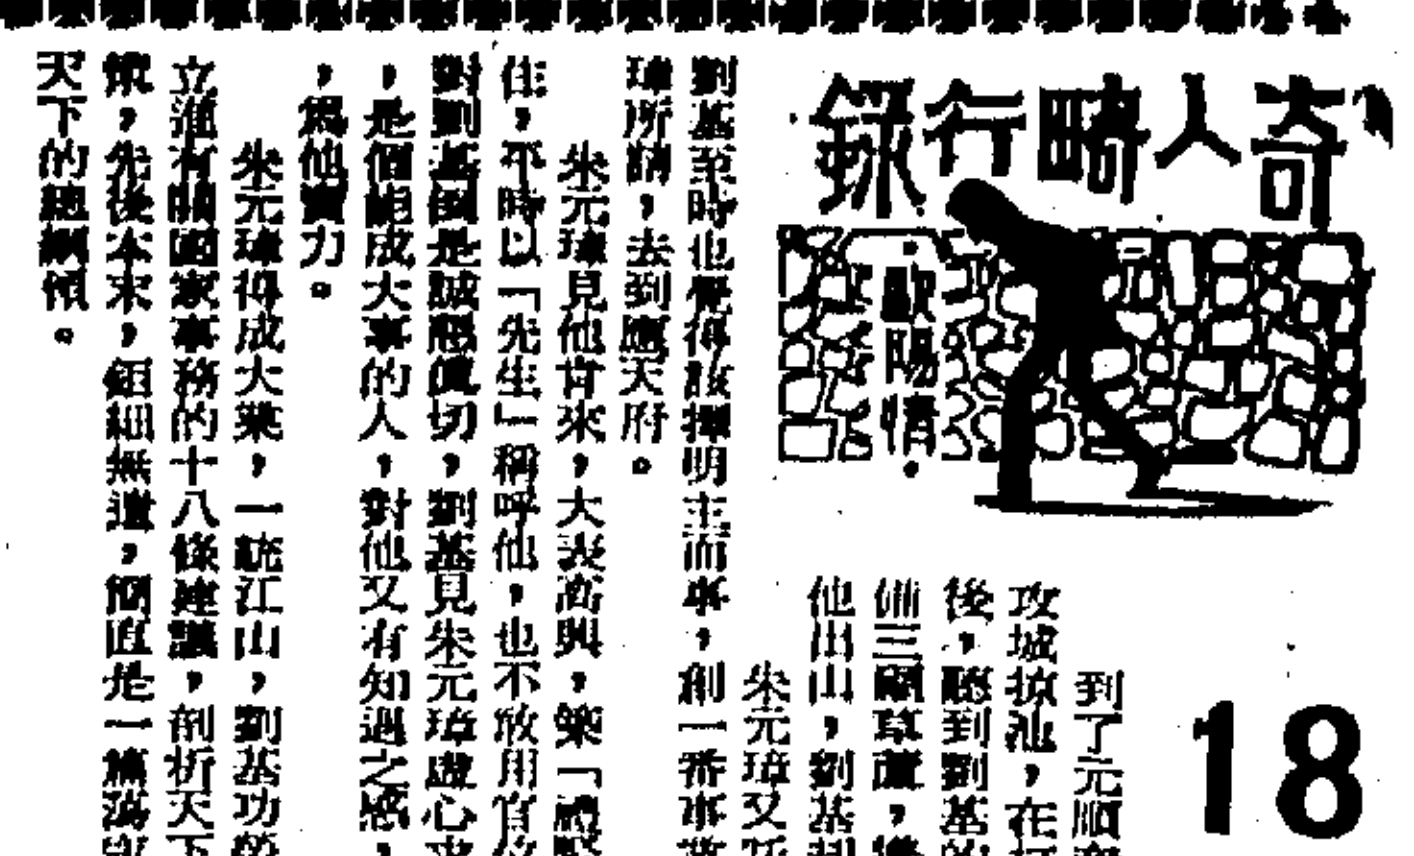 奇人畸行錄
歐陽情
18
到了元順
攻城掠池，在
後，聽到劉基的
備三顧草蘆，
他出山，劉基
朱元璋又
劉基至時也覺得該擇明主而事，創一番事業
璋所請，去到應天府。
朱元璋見他肯來，大表高興，築「禮賢
住，平時以「先生」稱呼他，也不敢用官位
對劉基倒是誠懇真切，劉基見朱元璋虛心求
，是個能成大事的人，對他又有知遇之感，
，爲他賣力。
朱元璋得成大業，一統江山，劉基功勞
立淮有關國家事務的十八條建議，剖析天下
，先後本末，鉅細無遺，簡直是一篇
天下的總綱領。